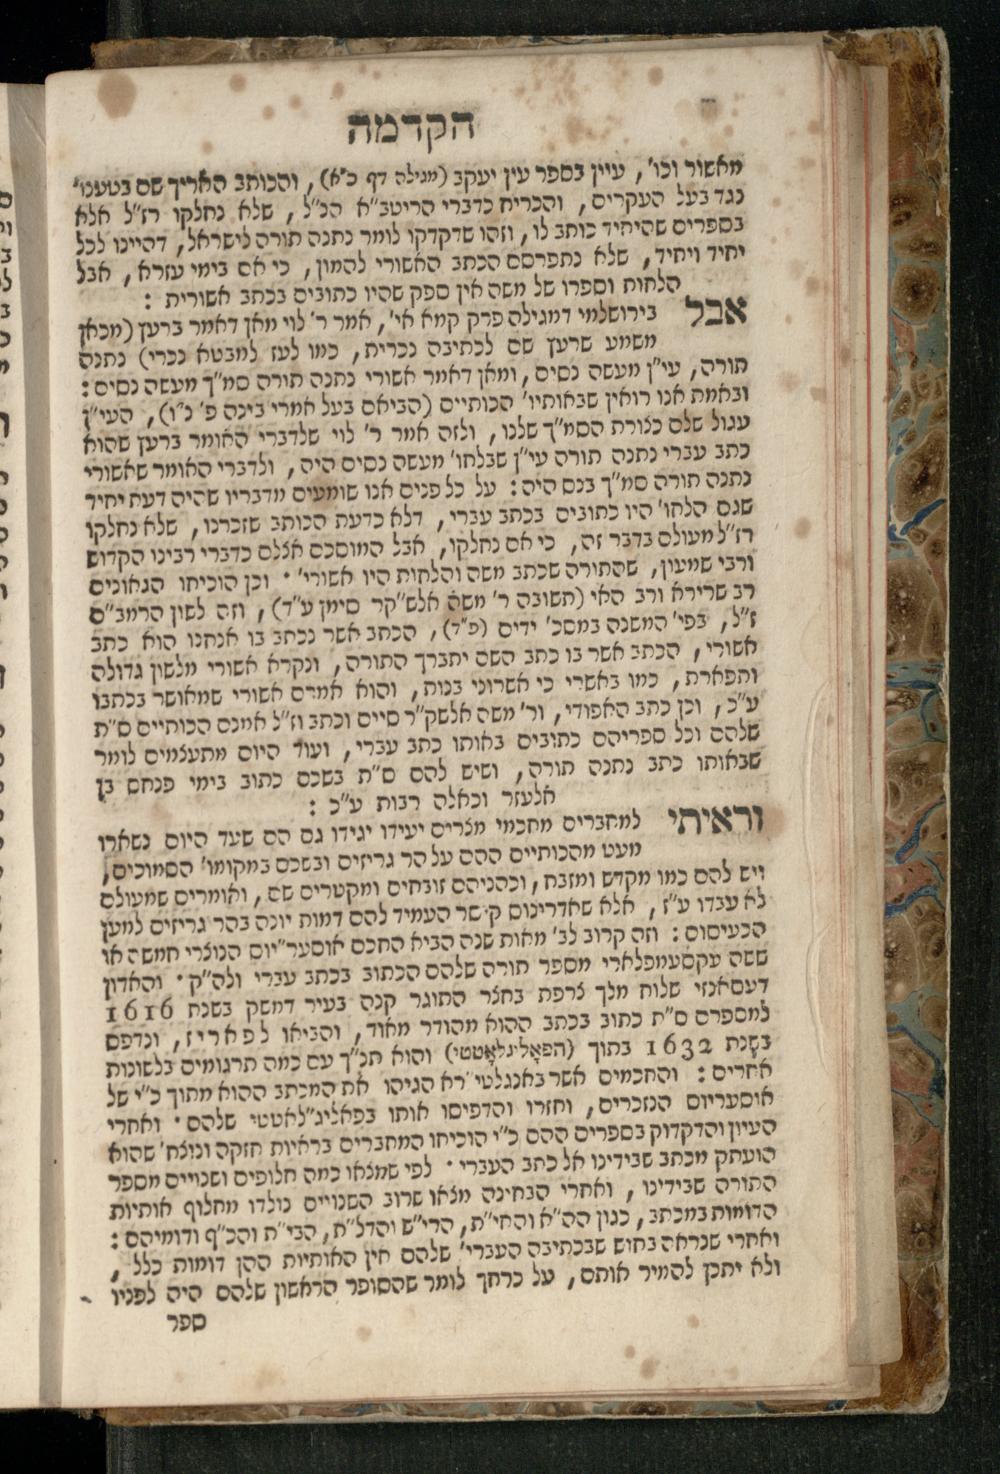 הקדמה
מאשור וכו', עיין בספר עין יעקב (מגילה דף כ"א), והכותב האריך שם בטענו'
נגד בעל העקרים, והכריח כדברי הריטב"א הנ"ל, שלא נחלקו רז"ל אלא
בספרים שהיחיד כותב לו, וזהו שדקדקו לומר נתנה תורה לישראל, דהיינו לכל
יחיד ויחיד, שלא נתפרסם הכתב האשורי להמון, כי אם בימי עזרא, אבל
הלחות וספרו של משה אין ספק שהיו כתובים בכתב אשורית :
אבל בירושלמי דמגילה פרק קמא אי', אמר ר' לוי מאן דאמר ברעץ (מכאן
משמע שרעץ שם לכתיבה נכרית, כמו לעז למבטא נכרי) נתנה
תורה, עי"ן מעשה נסים, ומאן דאמר אשורי נתנה תורה סמ"ך מעשה נסים :
ובאמת אנו רואין שבאותיו' הכותיים (הביאם בעל אמרי בינה פ' נ"ו), העי"ן
עגול שלם כצורת הסמ"ך שלנו, ולזה אמר ר' לוי שלדברי האומר ברעץ שהוא
כתב עברי נתנה תורה עי"ן שבלחו' מעשה נסים היה, ולדברי האומר שאשורי
נתנה תורה סמ"ך בנס היה : על כל פנים אנו שומעים מדבריו שהיה דעת יחיד
שגם הלחו' היו כתובים בכתב עברי, דלא כדעת הכותב שזכרנו, שלא נחלקו
רז"ל מעולם בדבר זה, כי אם נחלקו, אבל המוסכם אצלם כדברי רבינו הקדוש
ורבי שמעון, שהתורה שכתב משה והלחות היו אשורי' · וכן הוכיחו הגאונים
רב שרירא ורב האי (תשובה ר' משה אלש"קר סימן ע"ד), וזה לשון הרמב"ם
ז"ל, בפי' המשנה במסכ' ידים (פ"ד), הכתב אשר נכתב בו אנחנו הוא כתב
אשורי, הכתב אשר בו כתב השם יתברך התורה, ונקרא אשורי מלשון גדולה
ותפארת, כמו באשרי כי אשרוני בנות, והוא אמרם אשורי שמאושר בכתבו
ע"כ, וכן כתב האפודי, ור' משה אלשק"ר סיים וכתב וז"ל אמנם הכותיים ס"ת
שלהם וכל ספריהם כתובים באותו כתב עברי, ועוד היום מתעצמים לומר
שבאותו כתב נתנה תורה, ושיש להם ס"ת בשכם כתוב בימי פנחס בן
אלעזר וכאלה רבות ע"כ :
וראיתי למחברים מחכמי מצרים יעידו יגידו גם הם שעד היום נשארו
מעט מהכותיים ההם על הר גריזים ובשכם במקומו' הסמוכים,
ויש להם כמו מקדש ומזבח, וכהניהם זובחים ומקטרים שם, ואומרים שמעולם
לא עבדו ע"ז, אלא שאדרינוס קיסר העמיד להם דמות יונה בהר גריזים למען
הכעיסום : וזה קרוב לב' מאות שנה הביא החכם אוסער"יום הנוצרי חמשה או
ששה עקסעמפלארי מספר תורה שלהם הכתוב בכתב עברי ולה"ק · והאדון
דעסאנזי שלוח מלך צרפת בחצר התוגר קנה בעיר דמשק בשנת 1616
למספרם ס"ת כתוב בכתב ההוא מהודר מאוד, והביאו לפאריז, ונדפס
בשנת 1632 בתוך (הפאָליגלאָטטי) והוא תנ"ך עם כמה תרגומים בלשונות
אחרים : והחכמים אשר באנגלטי"רא הגיהו את המכתב ההוא מתוך כ"י של
אוסעריום הנזכרים, וחזרו והדפיסו אותו בפאליג"לאטטי שלהם · ואחרי
העיון והדקדוק בספרים ההם כ"י הוכיחו המחברים בראיות חזקה ונוצח' שהוא
הועתק מכתב שבידינו אל כתב העברי · לפי שמצאו כמה חלופים ושנויים מספר
התורה שבידינו, ואחרי הבחינה מצאו שרוב השנויים נולדו מחלוף אותיות
הדומות במכתב, כגון הה"א והחי"ת, הרי"ש והדל"ת, הבי"ת והכ"ף ודומיהם :
ואחרי שנראה בחוש שבכתיבה העברי' שלהם אין האותיות ההן דומות כלל,
ולא יתכן להמיר אותם, על כרחך לומר שהסופר הראשון שלהם היה לפניו
ספר